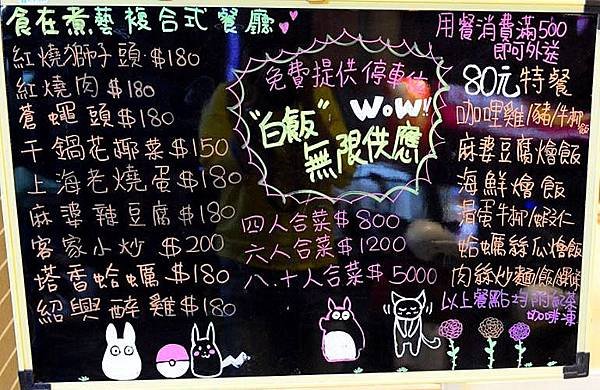 食在煮藝複合式餐廳
紅燒獅子頭.$180
紅燒肉$180
蒼蠅頭$180
干鍋花椰菜$150
上海老燒蛋$180
麻婆辣豆腐$180
客家小炒 $200
塔香蛤蠣 $180
紹興醉雞$180
免費提供停車
WOW!!
"白飯"
無限供應
四人合菜$800
六人合菜$1200
八.十人合菜$5000
用餐消費滿500
即可外送
80元特餐
咖哩雞/豬/牛柳飯
麻婆豆腐燴飯
海鮮燴飯
滑蛋牛柳/蝦仁
蛤蠣絲瓜燴飯
肉絲炒麵/飯/
以上餐點均附
咖啡凍